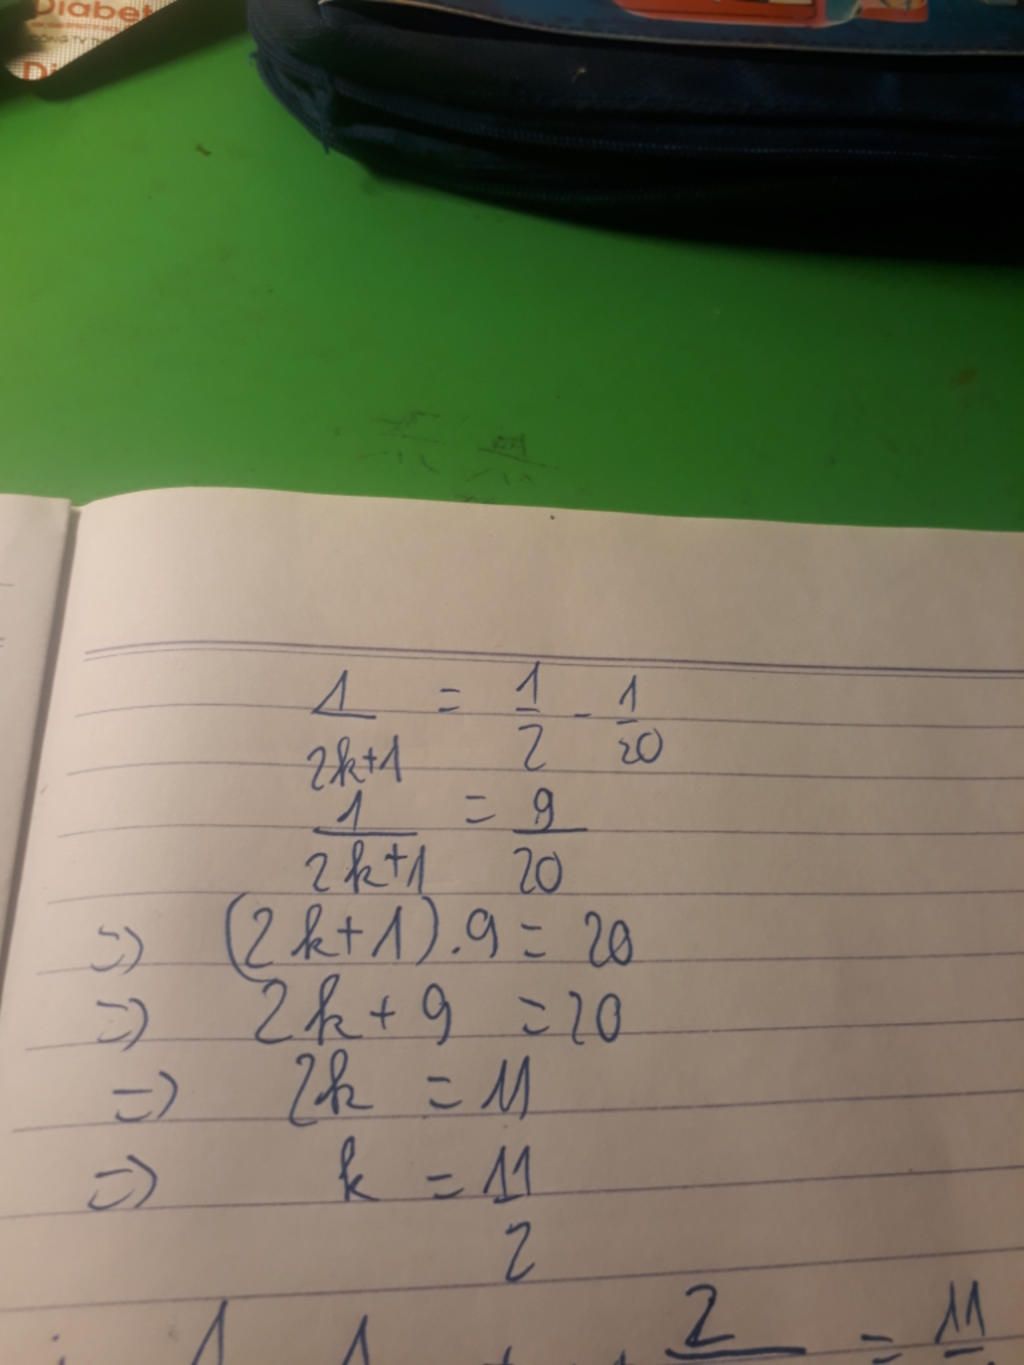 Diabet
Di
1/(2k+1) = 1/2 - 1/20
1/(2k+1) = 9/20
=> (2k+1).9 = 20
=> 2k+9 = 20
=> 2k = 11
=> k = 11/2
2 = 11